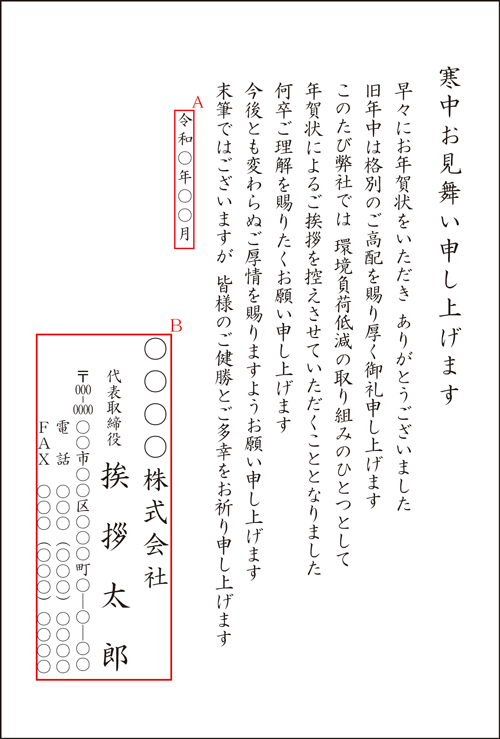 寒中お見舞い申し上げます
早々にお年賀状をいただき ありがとうございました
旧年中は格別のご高配を賜り厚く御礼申し上げます
このたび弊社では 環境負荷低減の取り組みのひとつとして
年賀状によるご挨拶を控えさせていただくこととなりました
何卒ご理解を賜りたくお願い申し上げます
今後とも変わらぬご厚情を賜りますようお願い申し上げます
末筆ではございますが 皆様のご健勝とご多幸をお祈り申し上げます
A
令和○年○○月
B
○○○○株式会社
代表取締役 挨拶太郎
〒000-0000 ○○市○○区○○○町○―○―○○
電話 ○○○(○○○)○○○○
FAX ○○○(○○○)○○○○